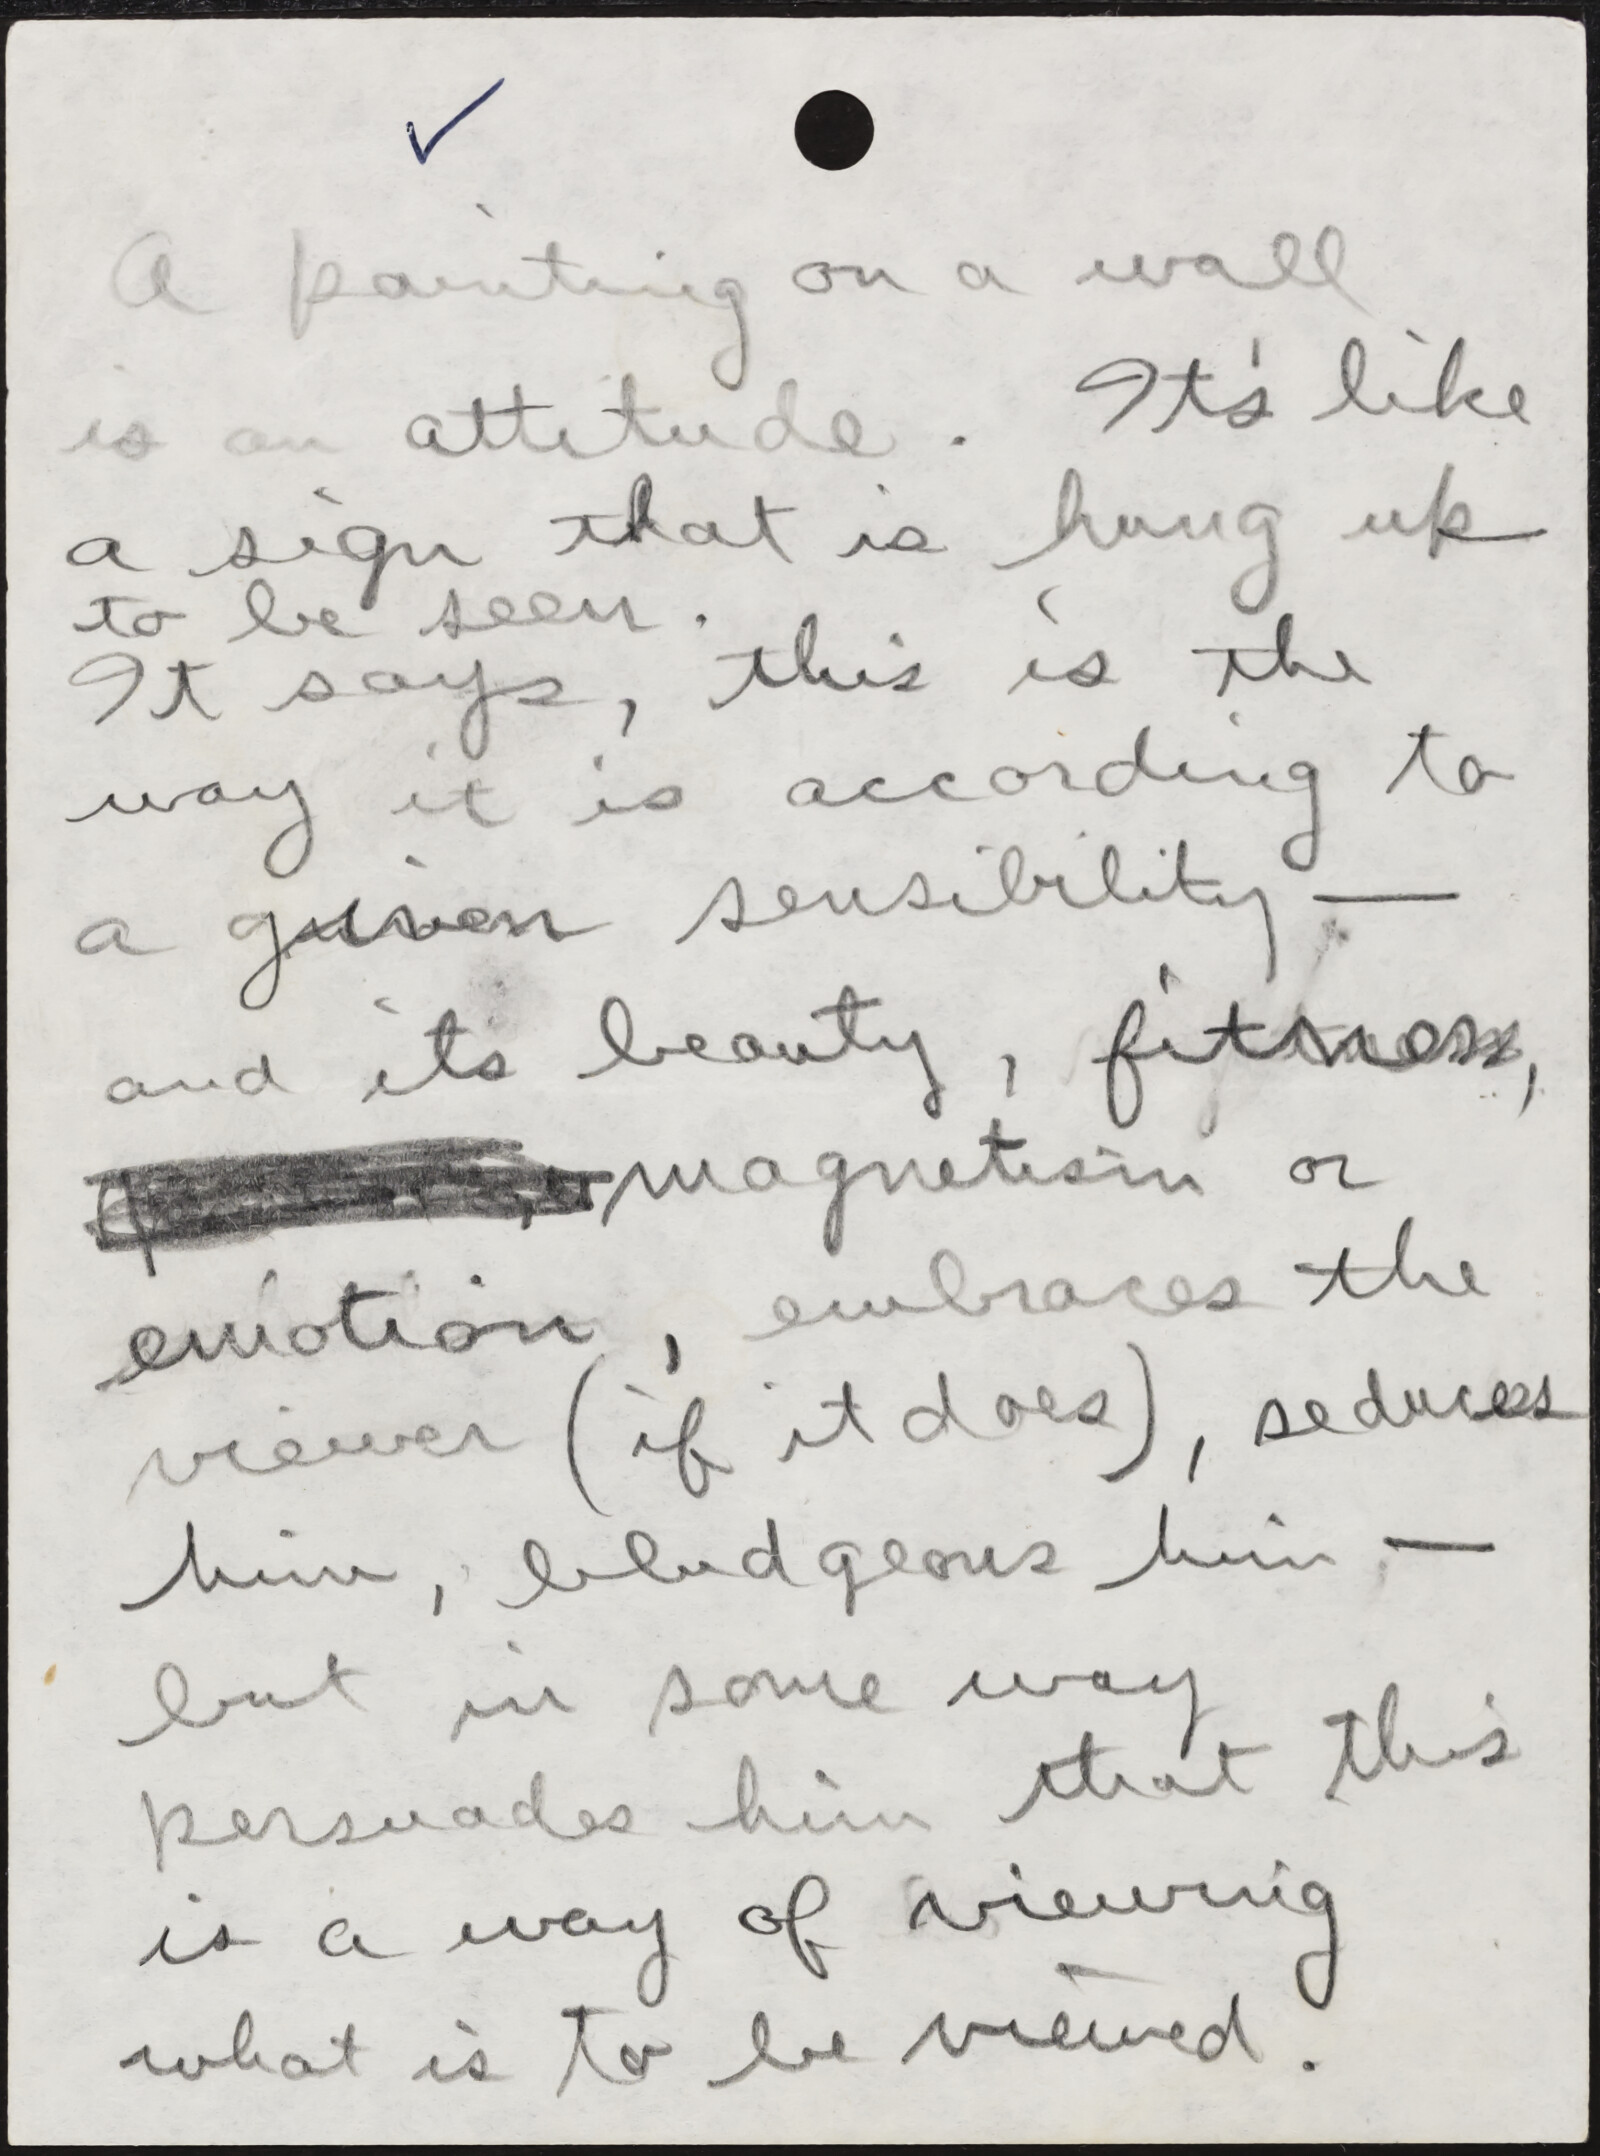 A painting on a wall
is an attitude. It's like
a sign that is hung up
to be seen.
It says, this is the
way it is according to
a given sensibility —
and its beauty, fitness,
magnetism or
emotion, embraces the
viewer (if it does), seduces
him, bludgeons him —
but in some way
persuades him that this
is a way of viewing
what is to be viewed.